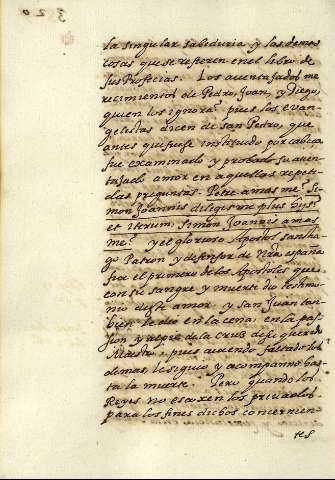 la singular sabiduria y las demas
cosas que se refieren en el libro de
sus Profecias. Los auentajados me
recimientos de Pedro, Joan, y Diego,
quien los ignora? pues los euan-
gelistas dicen de san Pedro, que
antes que fuese instituido por cabeça
fue examinado y probado su auen-
tajado amor en aquellas repeti-
das preguntas. Petre amas me? Si-
mon Joannis diligis me plus hys?
et iterum, Simon Joannes amas
me? y el glorioso Apostol santia-
go Patron y defensor de nra españa
fue el primero de los Apostoles que
con su sangre y muerte dio testimo-
nio deste amor y san Juan tan-
bien le dio en la cena, en la pas-
sion y al pie de la cruz de su querido
Maestro, pues auiendo faltado los
demas, le siguio y acompanno has-
ta la muerte. Pero quando los
Reyes no escoxen los priuados
para los fines dichos concernien
tes